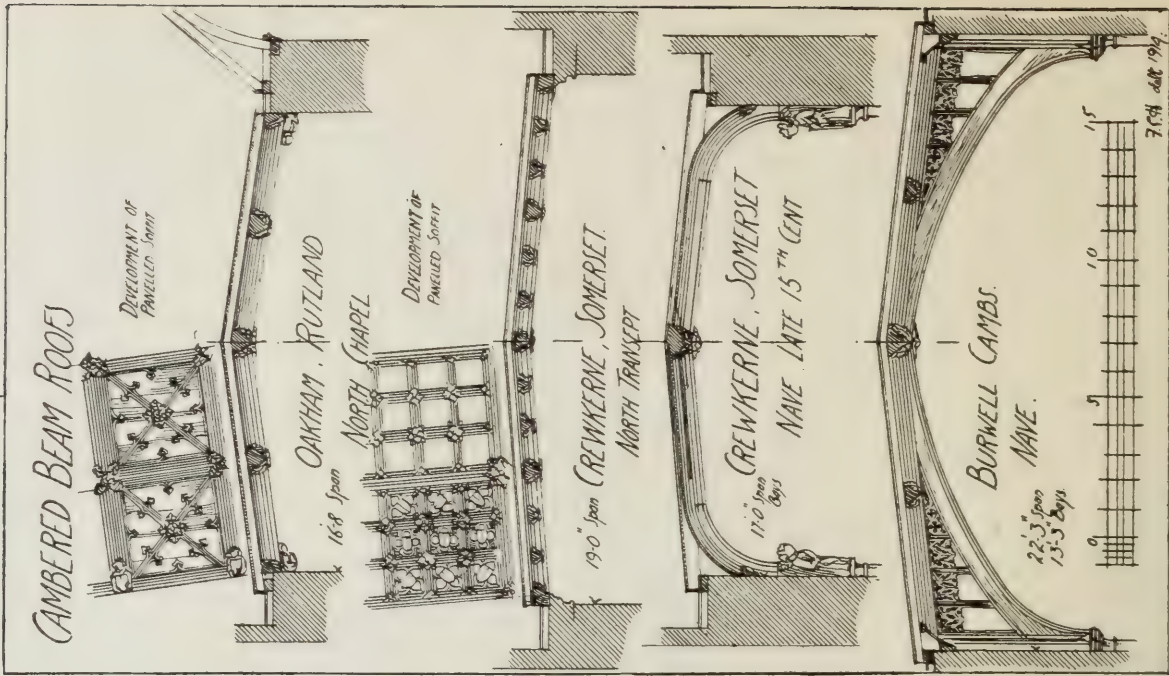 CAMBERED BEAM ROOFS
DEVELOPMENT OF
PANELLED SOFFIT
OAKHAM, RUTLAND
16·8 Span
NORTH CHAPEL
DEVELOPMENT OF
PANELLED SOFFIT
19·0" Span CREWKERNE, SOMERSET.
NORTH TRANSEPT
CREWKERNE, SOMERSET
17·0" Span
Bays
NAVE LATE 15TH CENT
BURWELL CAMBS.
NAVE.
22'·3" Span
13'·3" Bays
0 5 10 15
delt 1914.